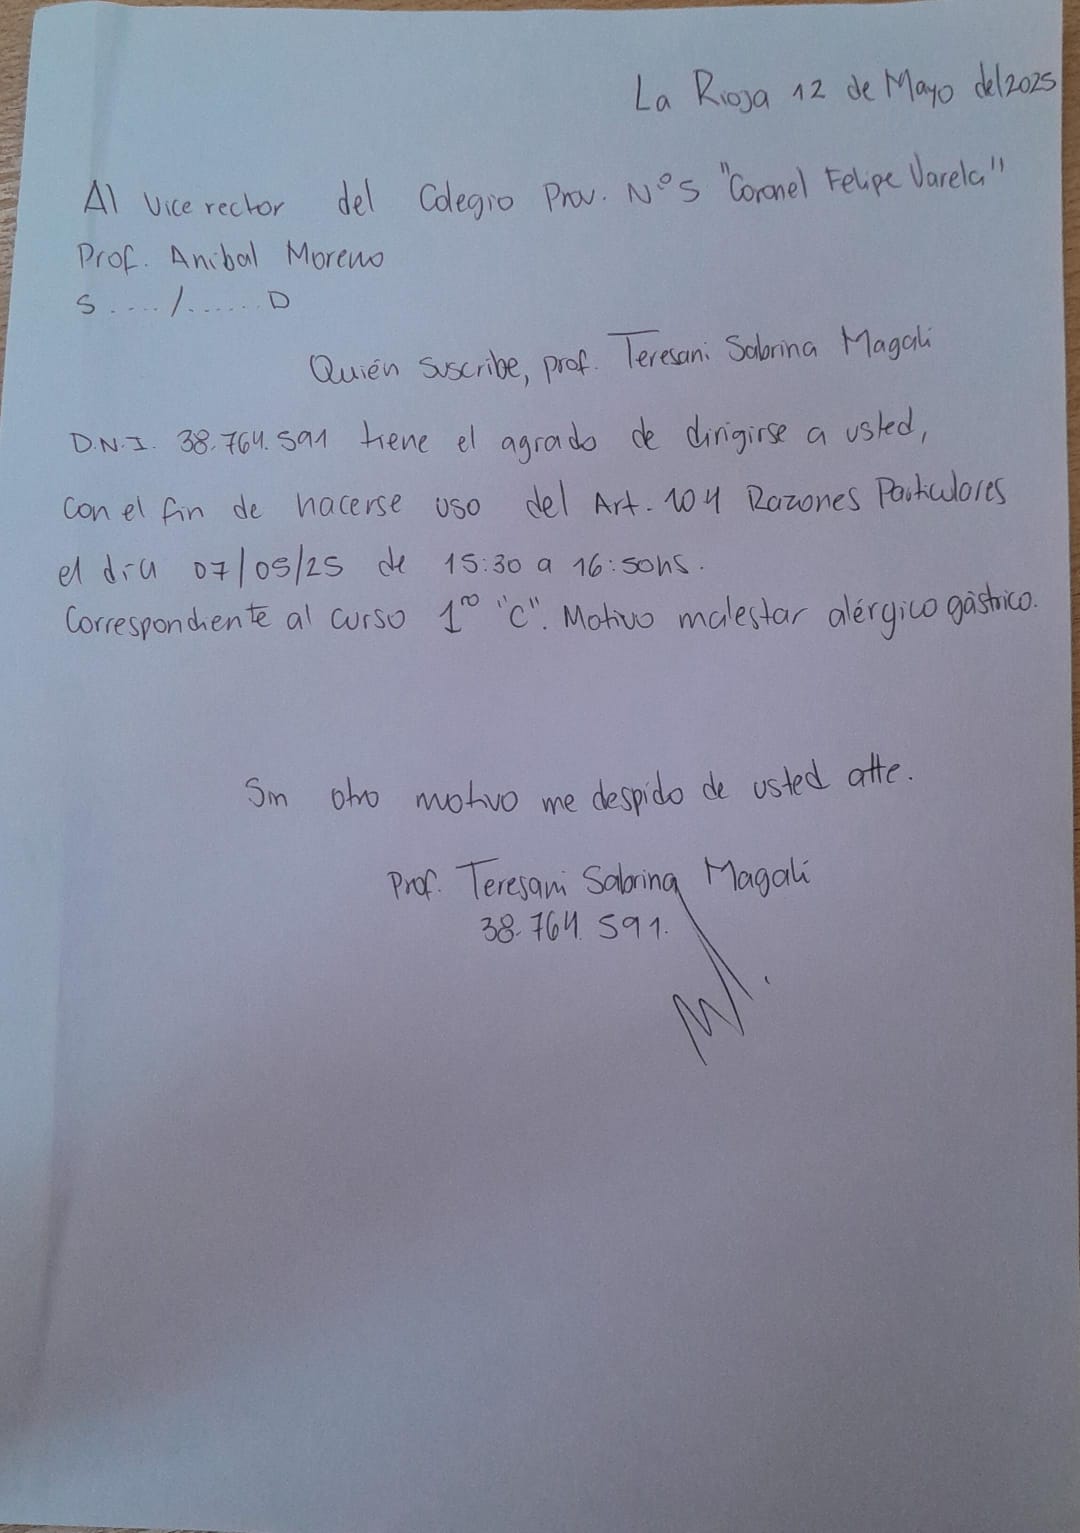 La Rioja 12 de Mayo del 2025
Al Vice rector del Colegio Prov. N°5 "Coronel Felipe Varela"
Prof. Anibal Moreno
S..../......D
Quién suscribe, prof. Teresani Sabrina Magali
D.N.I. 38.764.591 tiene el agrado de dirigirse a usted,
con el fin de hacerse uso del Art. 104 Razones Particulares
el día 07/05/25 de 15:30 a 16:50hs.
Correspondiente al curso 1ro "C". Motivo malestar alérgico gástrico.
Sin otro motivo me despido de usted atte.
Prof. Teresani Sabrina Magali
38.764.591.